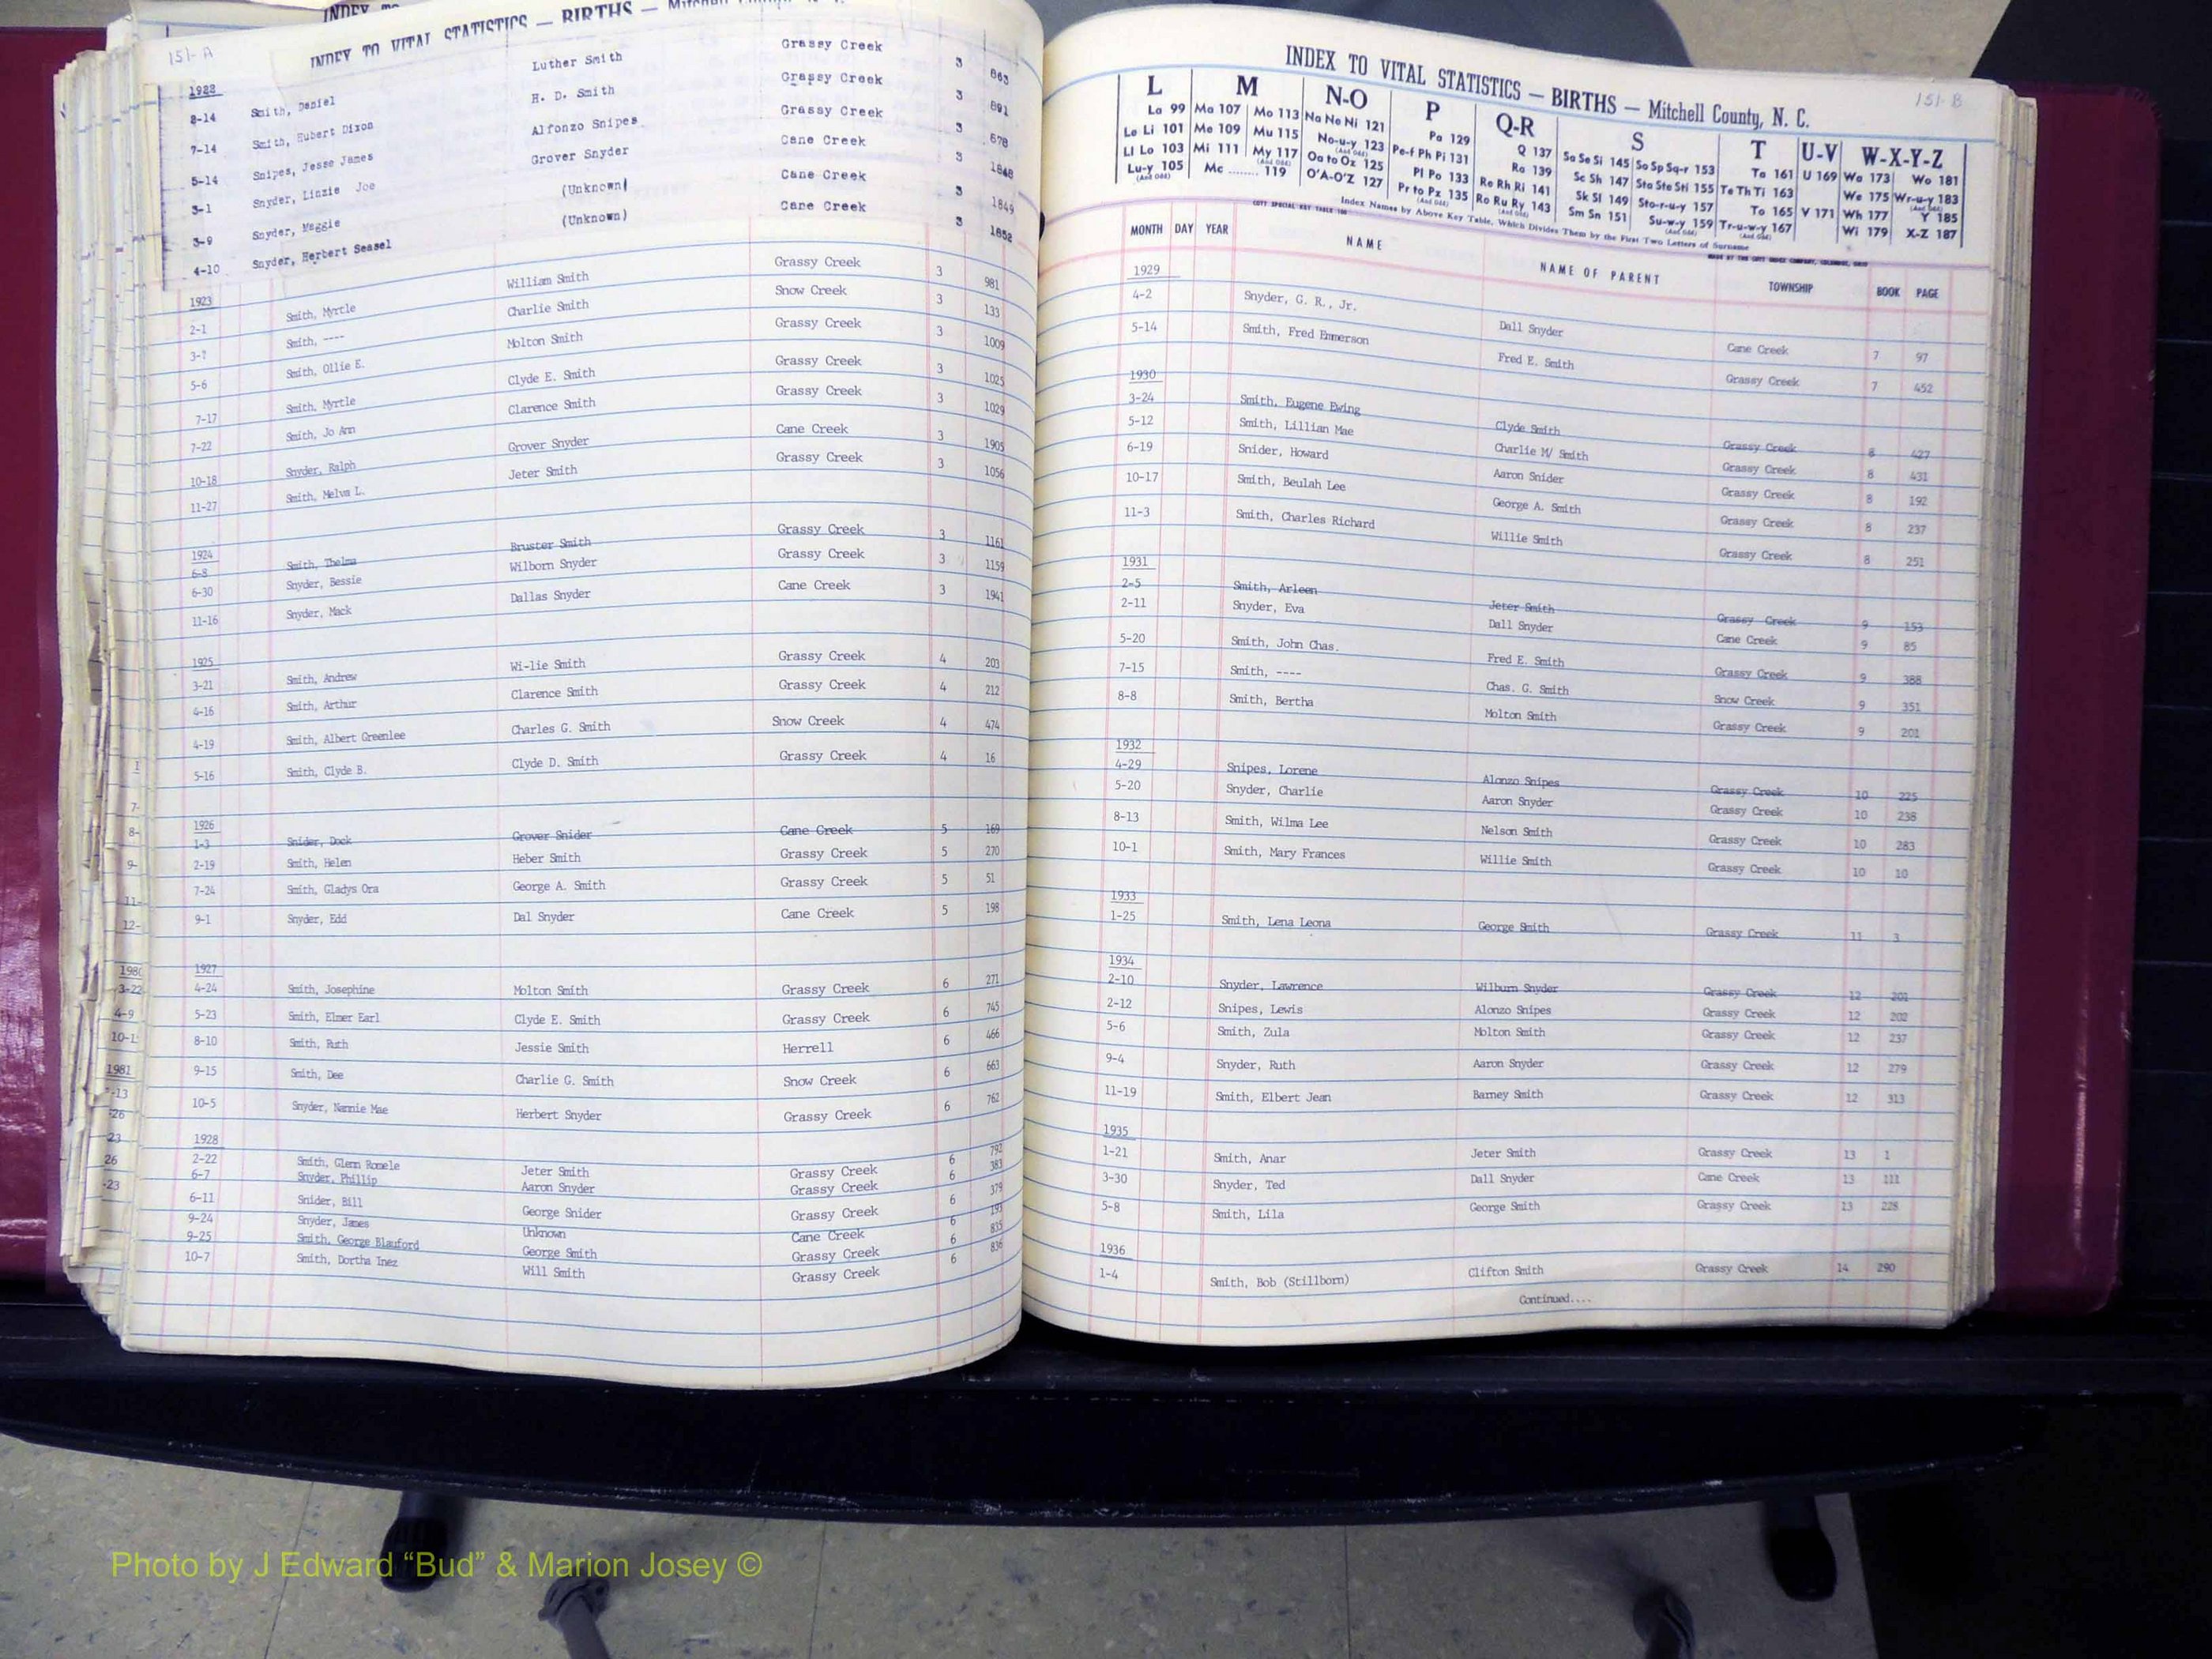 INDEX TO
151-A
INDEX TO VITAL STATISTICS — BIRTHS — Mitchell
1922
8-14 Smith, Daniel Luther Smith Grassy Creek 3 863
7-14 Smith, Hubert Dixon H. D. Smith Grassy Creek 3 891
5-14 Snipes, Jesse James Alfonzo Snipes Grassy Creek 3 878
3-1 Snyder, Linzie Joe Grover Snyder Cane Creek 3 1848
3-9 Snyder, Maggie (Unknown) Cane Creek 3 1849
4-10 Snyder, Herbert Seasel (Unknown) Cane Creek 3 1852
1923
2-1 Smith, Myrtle William Smith Grassy Creek 3 981
3-? Smith, ---- Charlie Smith Snow Creek 3 133
5-6 Smith, Ollie E. Molton Smith Grassy Creek 3 1009
7-17 Smith, Myrtle Clyde E. Smith Grassy Creek 3 1025
7-22 Smith, Jo Ann Clarence Smith Grassy Creek 3 1029
10-18 Snyder, Ralph Grover Snyder Cane Creek 3 1905
11-27 Smith, Melva L. Jeter Smith Grassy Creek 3 1056
1924
6-8 Smith, Thelma Bruster Smith Grassy Creek 3 1161
6-30 Snyder, Bessie Wilborn Snyder Grassy Creek 3 1159
11-16 Snyder, Mack Dallas Snyder Cane Creek 3 1941
1925
3-21 Smith, Andrew Wi-lie Smith Grassy Creek 4 203
4-16 Smith, Arthur Clarence Smith Grassy Creek 4 212
4-19 Smith, Albert Greenlee Charles G. Smith Snow Creek 4 474
5-16 Smith, Clyde B. Clyde D. Smith Grassy Creek 4 16
1926
1-3 Snider, Dock Grover Snider Cane Creek 5 169
2-19 Smith, Helen Heber Smith Grassy Creek 5 270
7-24 Smith, Gladys Ora George A. Smith Grassy Creek 5 51
9-1 Snyder, Edd Dal Snyder Cane Creek 5 198
1927
4-24 Smith, Josephine Molton Smith Grassy Creek 6 271
5-23 Smith, Elmer Earl Clyde E. Smith Grassy Creek 6 745
8-10 Smith, Ruth Jessie Smith Herrell 6 466
9-15 Smith, Dee Charlie G. Smith Snow Creek 6 663
10-5 Snyder, Nannie Mae Herbert Snyder Grassy Creek 6 762
1928
2-22 Smith, Glenn Romele Jeter Smith Grassy Creek 6 792
6-7 Snyder, Phillip Aaron Snyder Grassy Creek 6 383
6-11 Snider, Bill George Snider Grassy Creek 6 379
9-24 Snyder, James Unknown Cane Creek 6 193
9-25 Smith, George Blauford George Smith Grassy Creek 6 835
10-7 Smith, Dortha Inez Will Smith Grassy Creek 6 836
1
7-
8-
9-
11-
12-
1980
3-22
4-9
10-1
1981
-13
-26
-23
26
-23
INDEX TO VITAL STATISTICS — BIRTHS — Mitchell County, N. C.
151-B
L M N-O P Q-R S T U-V W-X-Y-Z
La 99 Ma 107 Mo 113 Na Ne Ni 121 Pa 129 Q 137 Sa Se Si 145 So Sp Sq-r 153 Ta 161 U 169 Wa 173 Wo 181
Le Li 101 Me 109 Mu 115 No-u-y 123 (And Odd) Pe-f Ph Pi 131 Ra 139 Sc Sh 147 Sta Ste Sti 155 Te Th Ti 163 We 175 Wr-u-y 183 (And Odd)
Ll Lo 103 Mi 111 My 117 (And Odd) Oa to Oz 125 Pl Po 133 Re Rh Ri 141 Sk Sl 149 Sto-r-u-y 157 To 165 V 171 Wh 177 Y 185
Lu-y 105 (And Odd) Mc ........ 119 O'A-O'Z 127 Pr to Pz 135 (And Odd) Ro Ru Ry 143 (And Odd) Sm Sn 151 Su-w-y 159 (And Odd) Tr-u-w-y 167 (And Odd) Wi 179 X-Z 187
Index Names by Above Key Table, Which Divides Them by the First Two Letters of Surname
MONTH DAY YEAR NAME NAME OF PARENT TOWNSHIP BOOK PAGE
1929
4-2 Snyder, G. R., Jr. Dall Snyder Cane Creek 7 97
5-14 Smith, Fred Emmerson Fred E. Smith Grassy Creek 7 452
1930
3-24 Smith, Eugene Ewing Clyde Smith Grassy Creek 8 427
5-12 Smith, Lillian Mae Charlie M/ Smith Grassy Creek 8 431
6-19 Snider, Howard Aaron Snider Grassy Creek 8 192
10-17 Smith, Beulah Lee George A. Smith Grassy Creek 8 237
11-3 Smith, Charles Richard Willie Smith Grassy Creek 8 251
1931
2-5 Smith, Arleen Jeter Smith Grassy Creek 9 153
2-11 Snyder, Eva Dall Snyder Cane Creek 9 85
5-20 Smith, John Chas. Fred E. Smith Grassy Creek 9 388
7-15 Smith, ---- Chas. G. Smith Snow Creek 9 351
8-8 Smith, Bertha Molton Smith Grassy Creek 9 201
1932
4-29 Snipes, Lorene Alonzo Snipes Grassy Creek 10 225
5-20 Snyder, Charlie Aaron Snyder Grassy Creek 10 238
8-13 Smith, Wilma Lee Nelson Smith Grassy Creek 10 283
10-1 Smith, Mary Frances Willie Smith Grassy Creek 10 10
1933
1-25 Smith, Lena Leona George Smith Grassy Creek 11 3
1934
2-10 Snyder, Lawrence Wilburn Snyder Grassy Creek 12 201
2-12 Snipes, Lewis Alonzo Snipes Grassy Creek 12 202
5-6 Smith, Zula Molton Smith Grassy Creek 12 237
9-4 Snyder, Ruth Aaron Snyder Grassy Creek 12 279
11-19 Smith, Elbert Jean Barney Smith Grassy Creek 12 313
1935
1-21 Smith, Anar Jeter Smith Grassy Creek 13 1
3-30 Snyder, Ted Dall Snyder Cane Creek 13 111
5-8 Smith, Lila George Smith Grassy Creek 13 228
1936
1-4 Smith, Bob (Stillborn) Clifton Smith Grassy Creek 14 290
Continued....
Photo by J Edward “Bud” & Marion Josey ©